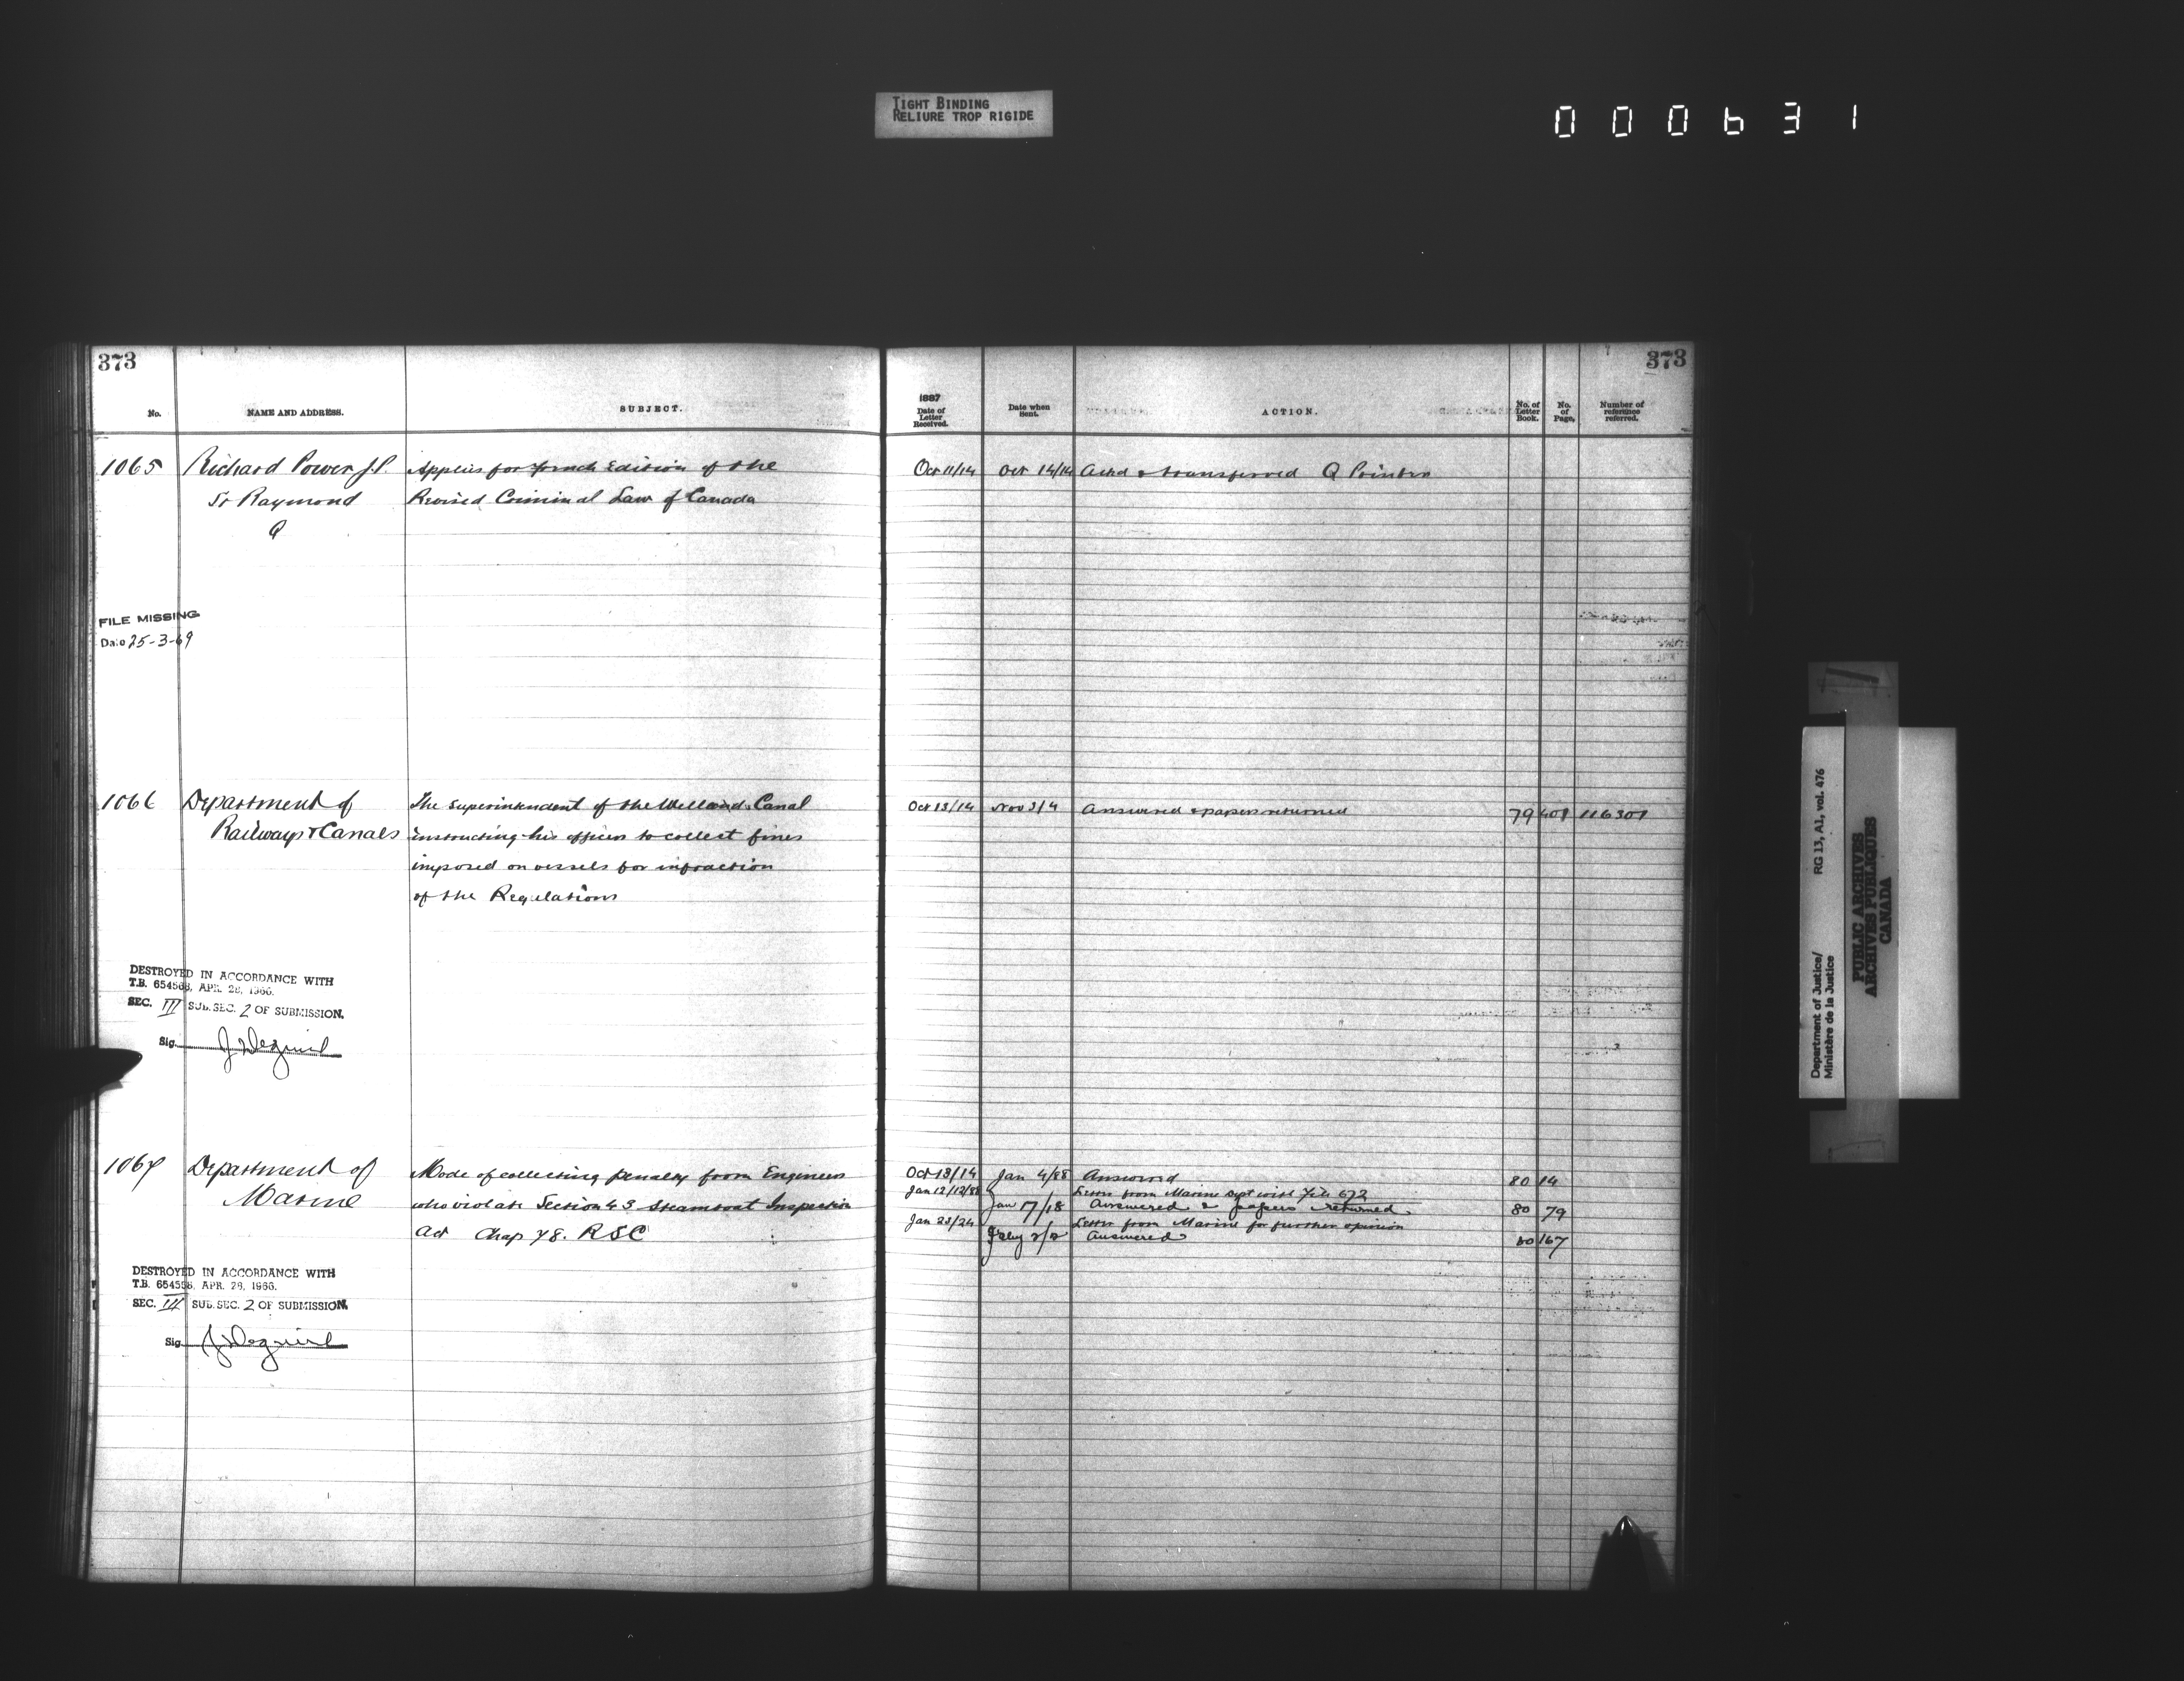 TIGHT BINDING
RELIURE TROP RIGIDE
000631
373
No.
NAME AND ADDRESS.
SUBJECT.
1065
Richard Power J.P.
St Raymond
Q
Applies for french Edition of the
Revised Criminal Law of Canada
FILE MISSING
Date 25-3-69
1066
Department of
Railways & Canals
The Superintendent of the Welland Canal
instructing his officers to collect fines
imposed on vessels for infraction
of the Regulations
DESTROYED IN ACCORDANCE WITH
T.B. 654568, APR. 28, 1966.
SEC. III SUB. SEC. 2 OF SUBMISSION.
Sig.
1067
Department of
Marine
Mode of collecting penalty from Engineers
who violate Section 43 Steamboat Inspection
Act Chap 78. RSC
DESTROYED IN ACCORDANCE WITH
T.B. 654568, APR. 28, 1966.
SEC. III SUB. SEC. 2 OF SUBMISSION.
Sig.
373
1887
Date of
Letter
Received.
Date when
Sent.
ACTION.
No. of
Letter
Book.
No.
of
Page.
Number of
reference
referred.
Oct 11/14 Oct 14/14 Ackd & transferred Q Printer
Oct 13/14 Nov 3/4 Answered & papers returned 79 408 116307
Oct 13/14 Jan 4/88 Answered 80 14
Jan 12/12/88 Letter from Marine Dept with File 672
Jan 17/18 Answered & papers returned. 80 79
Jan 23/24 Letter from Marine for further opinion
Feby 2/2 Answered 80 167
Department of Justice/ RG 13, A1, vol. 476
Ministère de la Justice
PUBLIC ARCHIVES
ARCHIVES PUBLIQUES
CANADA